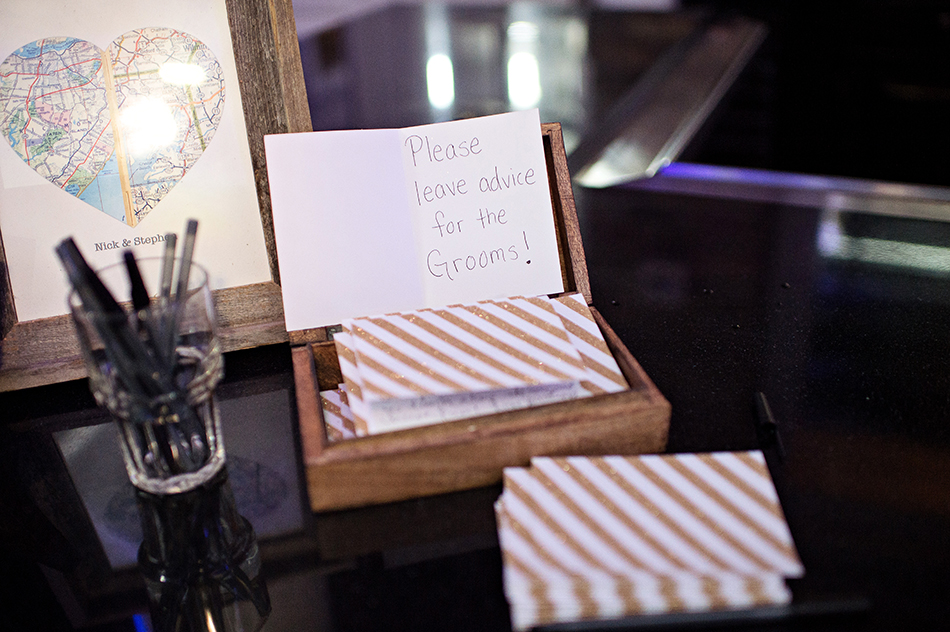 Nick &
Please
leave advice
for the
Grooms!